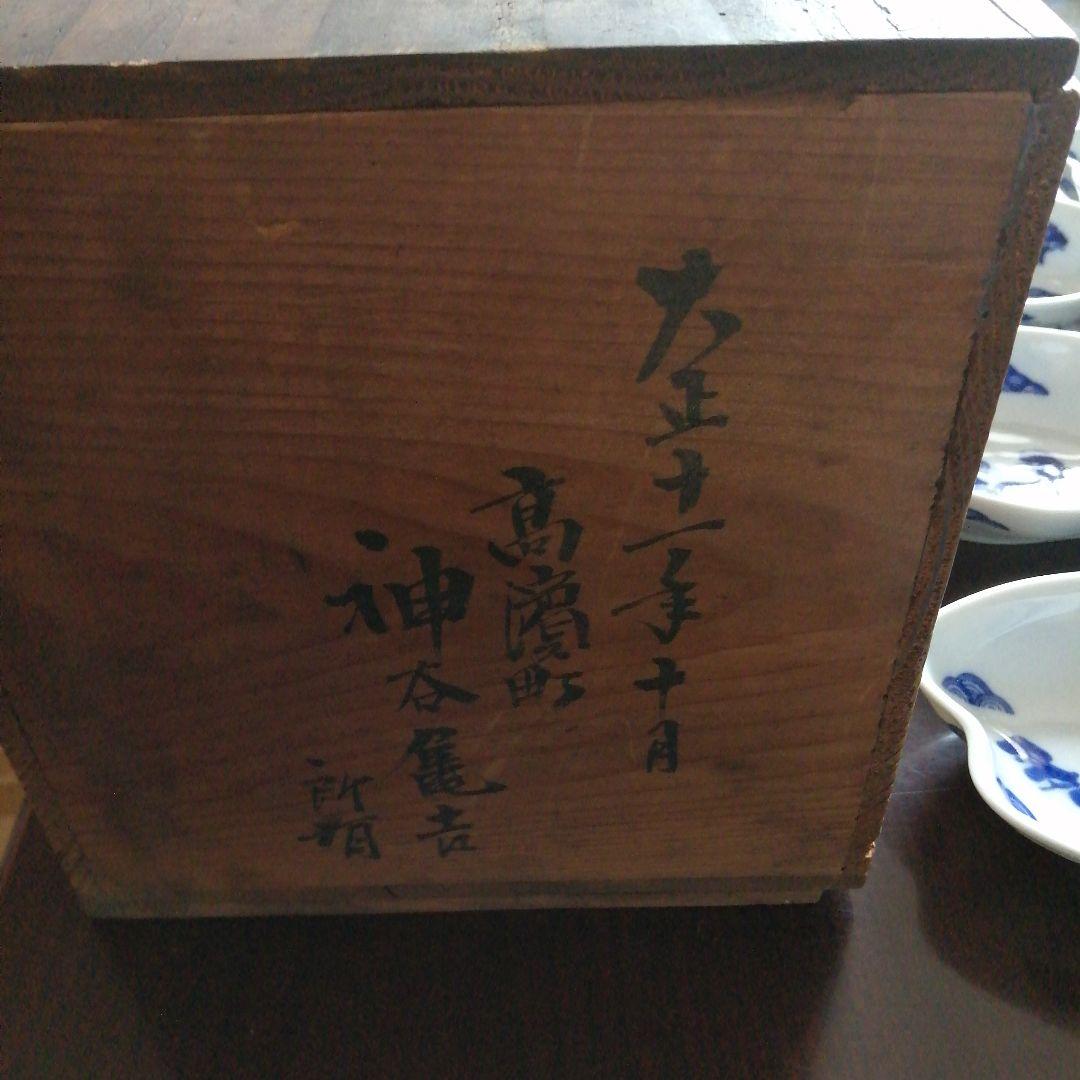 大正十一年十月
高濱町
神谷亀吉
所有